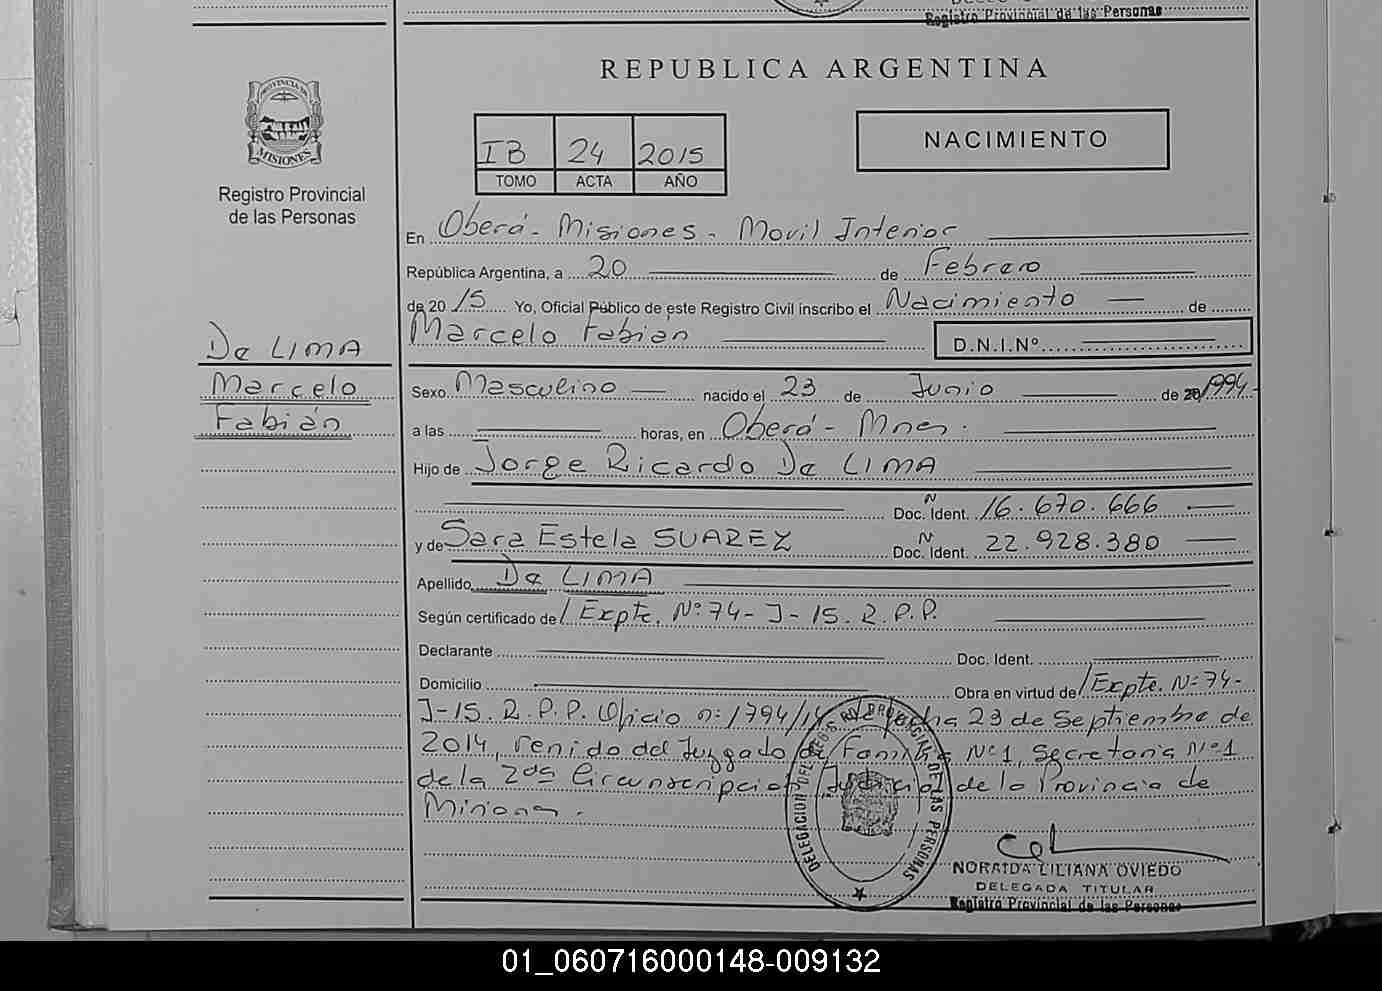 Registro Provincial de las Personas
PROVINCIA DE
MISIONES
Registro Provincial
de las Personas
REPUBLICA ARGENTINA
IB 24 2015
TOMO ACTA AÑO
NACIMIENTO
En Oberá - Misiones - Movil Interior
República Argentina, a 20 de Febrero
de 20 15 Yo, Oficial Público de este Registro Civil inscribo el Nacimiento de
Marcelo Fabián D.N.I.Nº
De LIMA
Marcelo
Fabián
Sexo Masculino nacido el 23 de Junio de 20 1994-
a las horas, en Oberá - Mnes.
Hijo de Jorge Ricardo De LIMA
Doc. Ident. N 16.670.666
y de Sara Estela SUAREZ Doc. Ident. N 22.928.380
Apellido De LIMA
Según certificado de / Expte. Nº 74-J-15. R.P.P.
Declarante Doc. Ident.
Domicilio Obra en virtud de / Expte. Nº 74-
J-15. R.P.P. Oficio nº 1794/14 de fecha 23 de Septiembre de
2014, venido del Juzgado de Familia Nº1, Secretaria Nº1
de la 2da Circunscripción Judicial de la Provincia de
Misiones.
DELEGACION REGISTRO PROVINCIAL DE LAS PERSONAS
NORAIDA LILIANA OVIEDO
DELEGADA TITULAR
Registro Provincial de las Personas
01_060716000148-009132